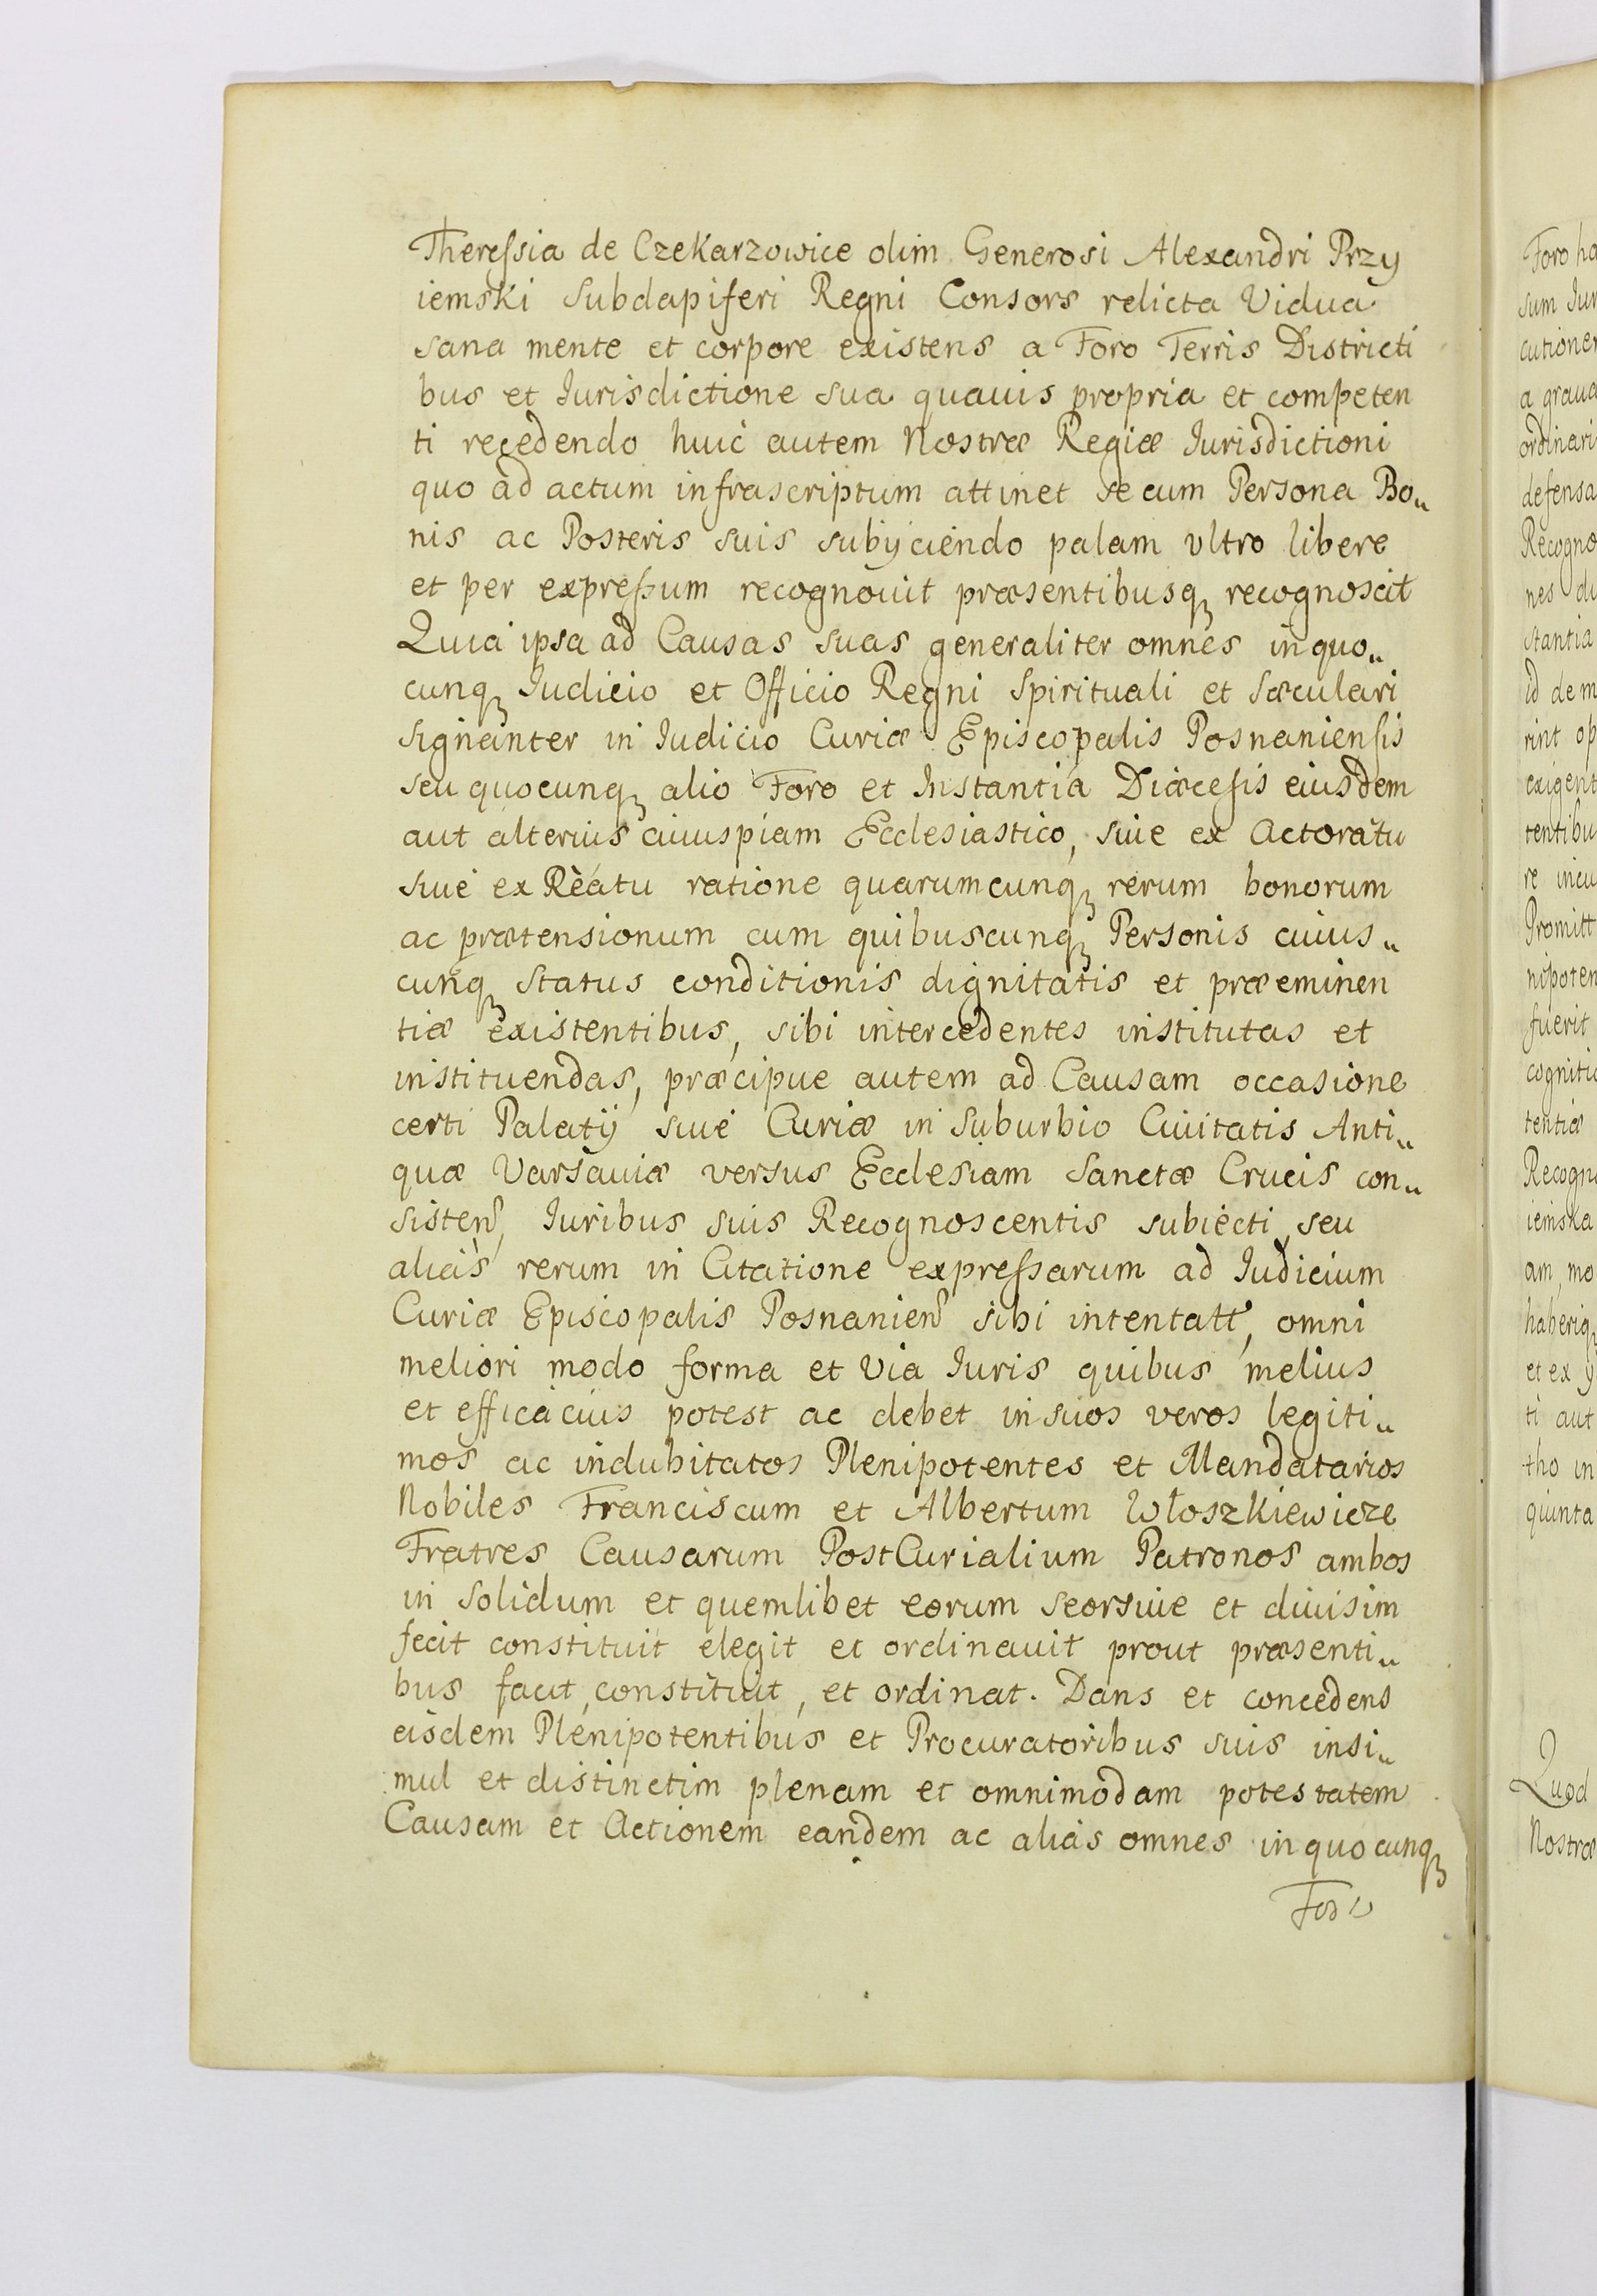 Theressia de Czekarzowice olim Generosi Alexandri Przy
iemski Subdapiferi Regni Consors relicta Vidua
sana mente et corpore existens a Foro Terris Districti
bus et Iurisdictione sua quauis propria et competen
ti recedendo huic autem Nostræ Regiæ Iurisdictioni
quo ad actum infrascriptum attinet se cum Persona Bo„
nis ac Posteris suis subijciendo palam vltro libere
et per expressum recognouit præsentibusq₃ recognoscit
Quia ipsa ad Causas suas generaliter omnes in quo„
cunq₃ Iudicio et Officio Regni Spirituali et Sæculari
signanter in Iudicio Curiæ Episcopalis Posnaniensis
seu quocunq₃ alio Foro et Instantia Diæcesis eiusdem
aut alterius cuiuspiam Ecclesiastico, siue ex Actoratu
siue ex Reatu ratione quarumcunq₃ rerum bonorum
ac prætensionum cum quibuscunq₃ Personis cuius„
cunq₃ status conditionis dignitatis et præeminen
tiæ existentibus, sibi intercedentes institutas et
instituendas, præcipue autem ad Causam occasione
certi Palatij siue Curiæ in Suburbio Ciuitatis Anti„
quæ Varsauiæ versus Ecclesiam Sanctæ Crucis con„
sisten, Iuribus suis Recognoscentis subiecti, seu
alias rerum in Citatione expressarum ad Iudicium
Curiæ Episcopalis Posnanien sibi intentatt, omni
meliori modo forma et via Iuris quibus melius
et efficacius potest ac debet in suos veros legiti„
mos ac indubitatos Plenipotentes et Mandatarios
Nobiles Franciscum et Albertum Włoszkiewicze
Fratres Causarum PostCurialium Patronos ambos
in solidum et quemlibet eorum seorsiue et diuisim
fecit constituit elegit et ordinauit prout præsenti„
bus facit, constituit, et ordinat. Dans et concedens
eisdem Plenipotentibus et Procuratoribus suis insi„
mul et distinctim plenam et omnimodam potestatem
Causam et Actionem eandem ac alias omnes in quocunq₃
Foro
Foro ha
sum Iur
cutionem
a graua
ordinari
defensa
Recogno
nes du
stantia
id dem
rint op
exigent
tentibu
re incu
Promitt
nipoten
fuerit
cognitio
tentiæ
Recogno
iemska
am, mo
haberiq₃
et ex ij
ti aut
tho in
quinta
Quod
Nostræ